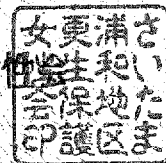 さいたま
浦和地区
更生保護
女性会印